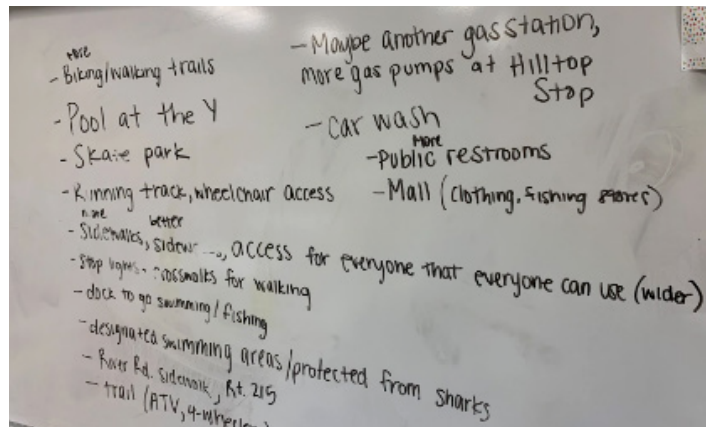 more
- Biking/walking trails
- Pool at the Y
- Skate park
- Running track, wheelchair access
more better
- Sidewalks, access for everyone that everyone can use (wider)
- Stop lights - crosswalks for walking
- dock to go swimming/fishing
- designated swimming areas/protected from sharks
- River Rd. sidewalk, Rt. 215
- trail (ATV, 4-wheeler)
- Maybe another gas station,
more gas pumps at Hilltop
Stop
- Car wash
More
- Public restrooms
- Mall (clothing, fishing stores)